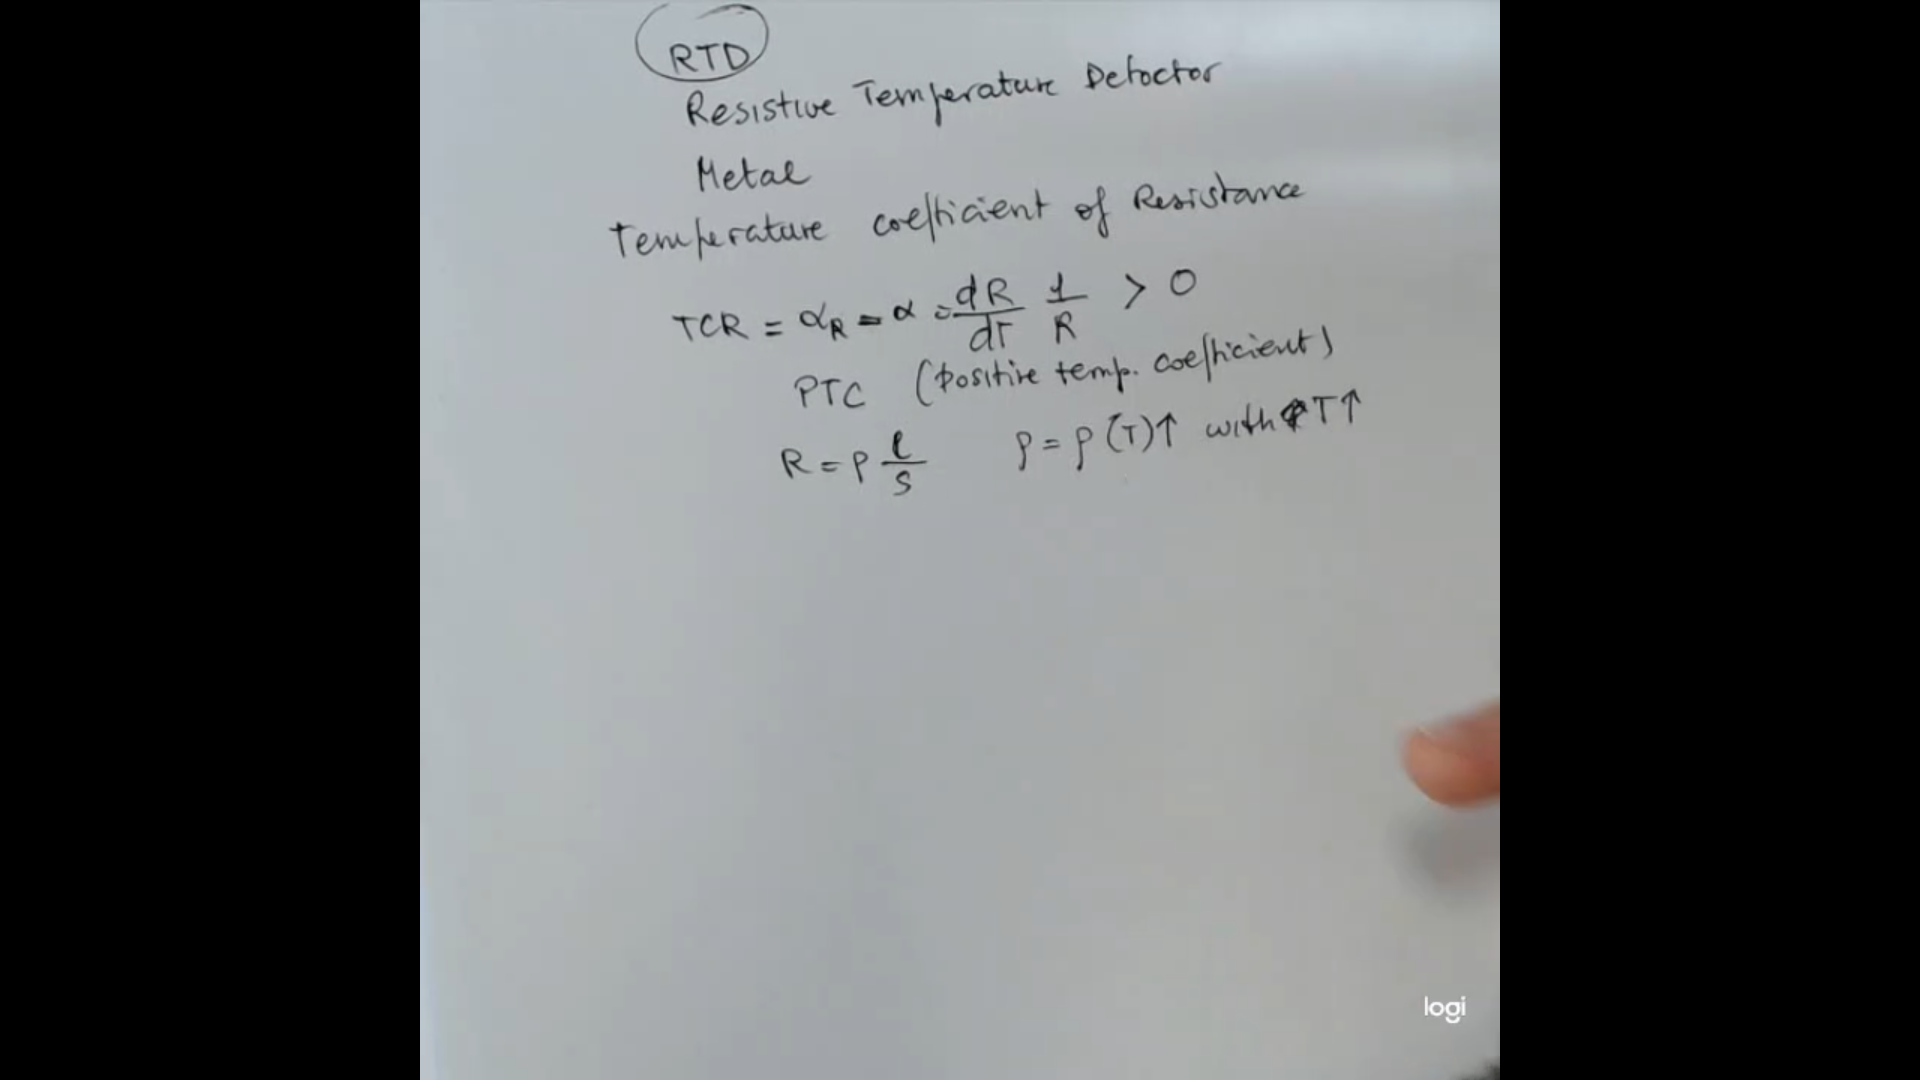 RTD
Resistive Temperature Detector
Metal
Temperature coefficient of Resistance
TCR = α_R = α = dR/dT 1/R > 0
PTC (positive temp. coefficient)
R = ρ l/s    ρ = ρ(T)↑ with T↑
logi